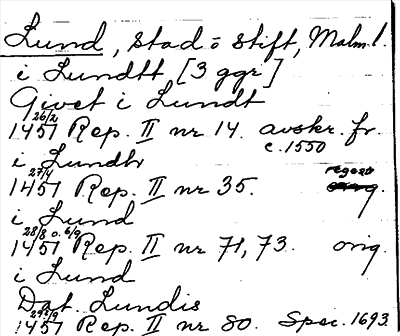 Lund, stad o stift, Malm. l.
i Lundtt [3 ggr]
Givet i Lundt
26/2 1451 Rep. II nr 14. avskr. fr. c. 1550
i Lundh
27/4 1451 Rep. II nr 35. regest
i Lund
28/8 o. 6/9 1451 Rep. II nr 71, 73. orig.
i Lund
Dat. Lundis
29/9 1451 Rep. II nr 80. Spec. 1693.